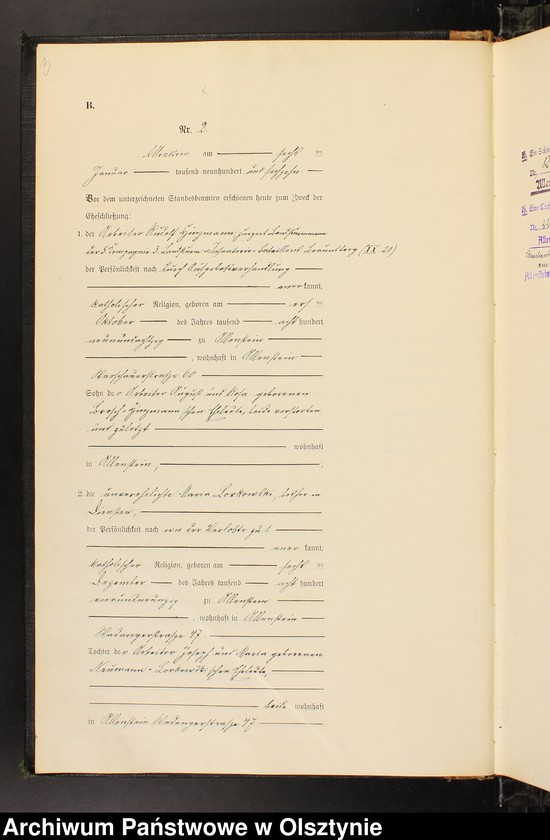 B.
Nr. 2
Allenstein am sechs ten
Januar tausend neunhundert und sechzehn.
Vor dem unterzeichneten Standesbeamten erschienen heute zum Zweck der
Eheschließung:
1. der Arbeiter Rudolf zurzeit Landsturmmann
der 3. Compagnie 3. Landsturm-Infanterie-Bataillons Braunsberg (XX 20)
der Persönlichkeit nach durch Aufgebotsverhandlung
aner kannt,
katholischer Religion, geboren am ten
Oktober des Jahres tausend acht hundert
neunundachtzig zu Allenstein
, wohnhaft in Allenstein
Warschauerstraße 60
Sohn der Arbeiter August und Rosa geborenen
schen Eheleute, beide verstorben
und zuletzt
wohnhaft
in Allenstein, ;
2. die unverehelichte Maria Lorkowski, bisher in
Diensten,
der Persönlichkeit nach wie der Verlobte zu 1
aner kannt,
katholischer Religion, geboren am sechs ten
Dezember des Jahres tausend acht hundert
vierundneunzig zu Allenstein
, wohnhaft in Allenstein
Wadangerstraße 47
Tochter der Arbeiter Joseph und Maria geborenen
Neumann-Lorkowski'schen Eheleute,
beide wohnhaft
in Allenstein Wadangerstraße 47
Archiwum Państwowe w Olsztynie